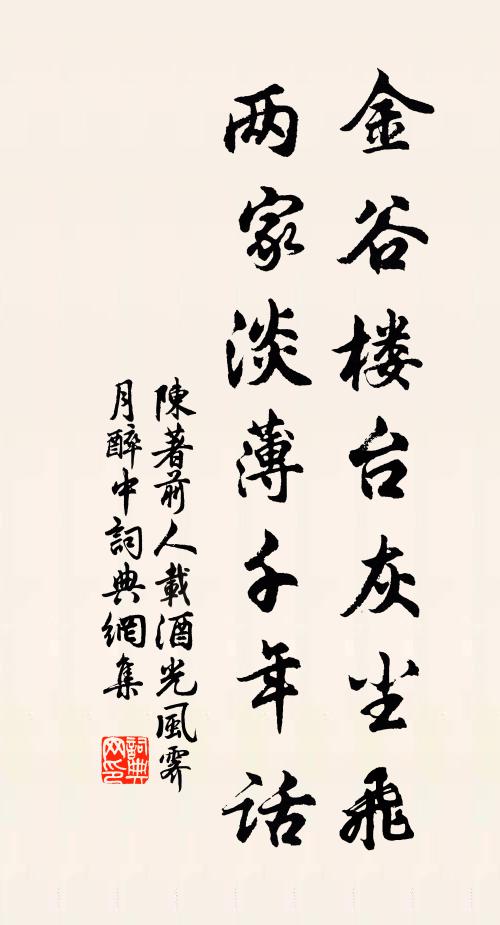 金谷楼台灰尘飛
两家淡薄千年话
陳著前人載酒光風霽
月醉中詞典網集
詞典網印